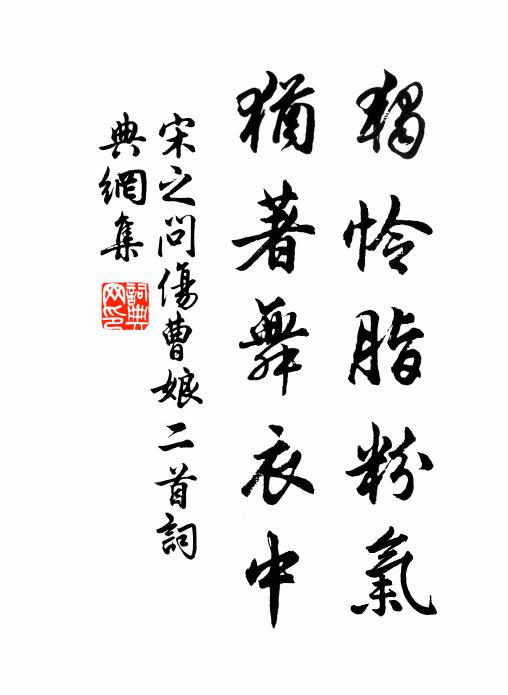 獨怜脂粉氣
猶著舞衣中
宋之問傷曹娘二首詞
典網集
詞典網印